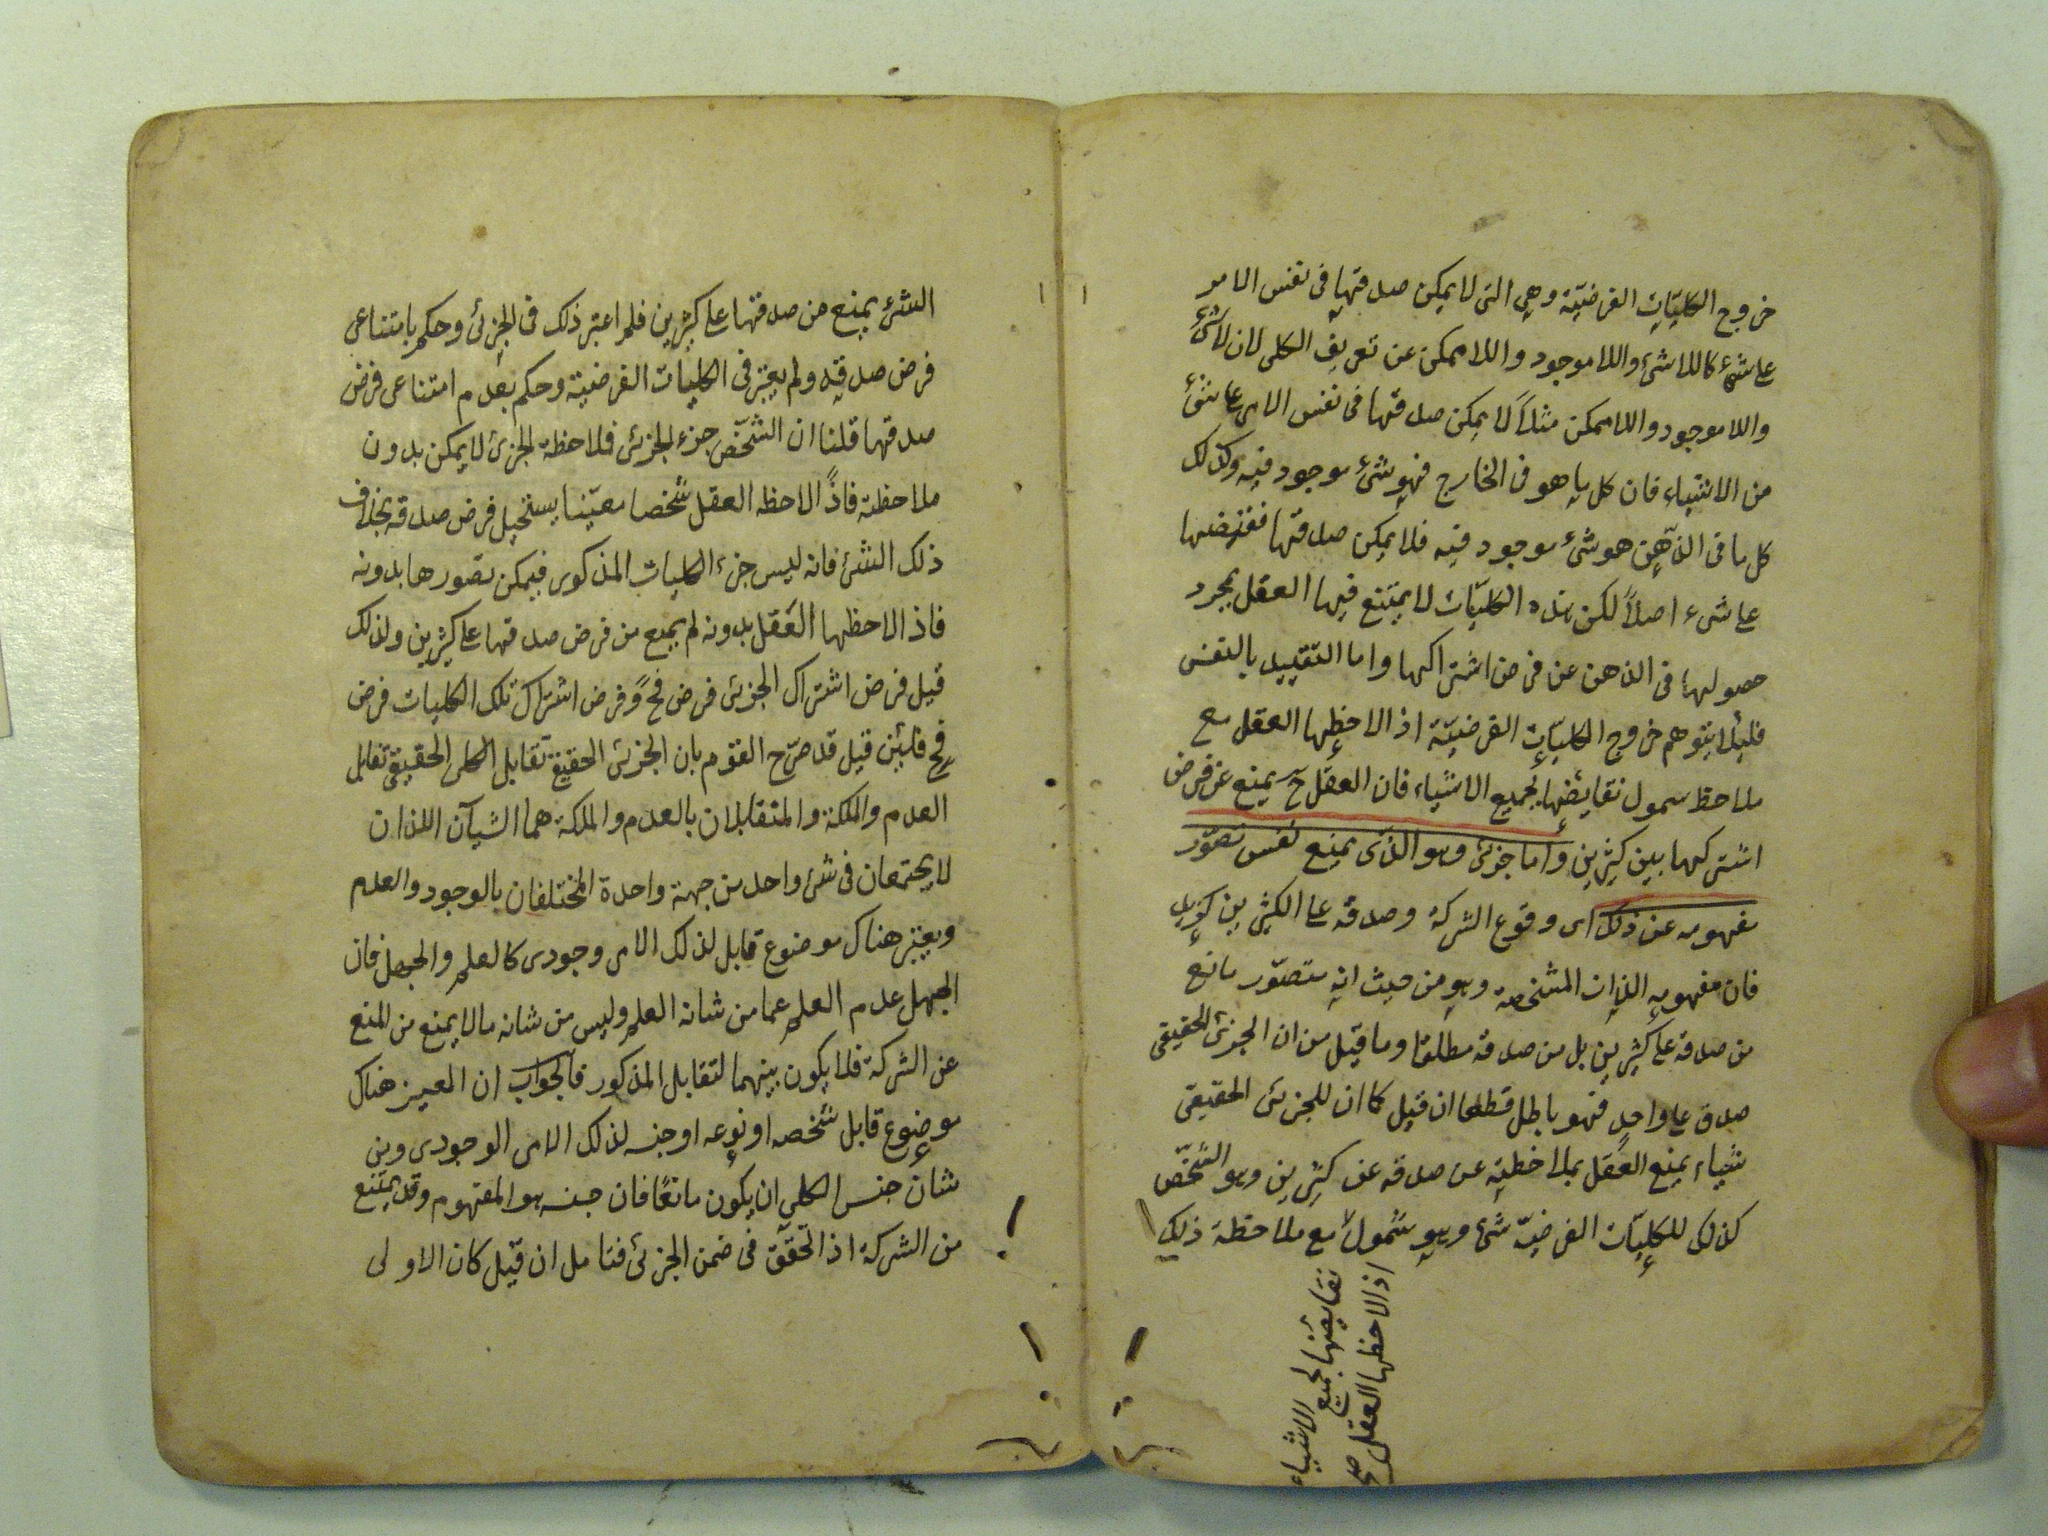 خروج الكليّات الفرضيّة وهي التى لا يمكن صدقها فى نفس الامر
على شئ كاللاشئ واللاموجود واللاممكن عن تعريف الكلى لان لاشئ
واللاموجود واللاممكن مثلاً لا يمكن صدقها فى نفس الامر على شئ
من الاشياء فان كل ما هو فى الخارج فهو شئ موجود فيه وكذلك
كل ما فى الذّهن هو شئ موجود فيه فلا يمكن صدقها
على شىء اصلاً لكن هذه الكليّات لا يمتنع فيها العقل بمجرد
حصولها فى الذهن عن فرض اشتراكها واما التقييد بالنفس
فليلا يتوهم خروج الكليّات الفرضيّة اذ الاحظها العقل مع
ملاحظ شمول نقايضها لجميع الاشياء فان العقل ح يمنع عن فرض
اشتركها بين كثيرين واما جزئى وهو الذى يمنع نفس تصوّر
مفهومه عن ذلك اى وقوع الشركة وصدقه على الكثيرين كزيد
فان مفهومه الذات المشخصة وهو من حيث انه متصوّر مانع
من صدقه على كثيرين بل من صدقه مطلقا وما قيل من ان الجزئى الحقيقى
صدق على واحد فهو باطل قطعا ان قيل كما ان للجزئى الحقيقى
شياء يمنع العقل بملاحظته عن صدقه عن كثيرين وهو التشخّص
كذلك للكليّات الفرضيّة شئ وهو شمول مع ملاحظة ذلك
نقايضها لجميع الاشياء
اذ الاحظها العقل صح
الشئ يمنع من صدقها على كثيرين فلم اعتبر ذلك فى الجزئى وحكم بامتناعى
فرض صدقه ولم يعتبر فى الكليات الفرضية وحكم بعدم امتناعى فرض
صدقها قلنا ان التشخّص جزء الجزئى فلاحظة الجزئى لا يمكن بدون
ملاحظته فاذاً الاحظه العقل شخصا معيّنا يستحيل فرض صدقه بخلاف
ذلك الشئ فانه ليس جزء الكليات المذكور فيمكن تصورها بدونه
فاذ الاحظها العقل بدونه لم يمنع من فرض صدقها على كثيرين ولذلك
قيل فرض اشتراك الجزئى فرض مح وفرض اشتراك تلك الكليات فرض
مح فلئن قيل قد صرّح القوم بان الجزئى الحقيقى تقابل الكلى الحقيقى تقابل
العدم والملكة والمتقابلان بالعدم والملكة هما الشيآن اللذان
لا يجتمعان فى شئ واحد من جهة واحدة المختلفان بالوجود والعدم
ويعتبر هناك موضوع قابل لذلك الامر وجودى كالعلم والجهل فان
الجهل عدم العلم عما من شانه العلم وليس من شانه مالا يمنع من المنع
عن الشركة فلا يكون بينهما لتقابل المذكور فالجواب ان المعتبر هناك
موضوع قابل شخصه او نوعه او جنسه لذلك الامر الوجودى ومن
شان جنس الكلى ان يكون مانعًا فان جنسه هو المفهوم وقد يمتنع
من الشركة اذ التحقّق فى ضمن الجزئى فتامل ان قيل كان الاولى